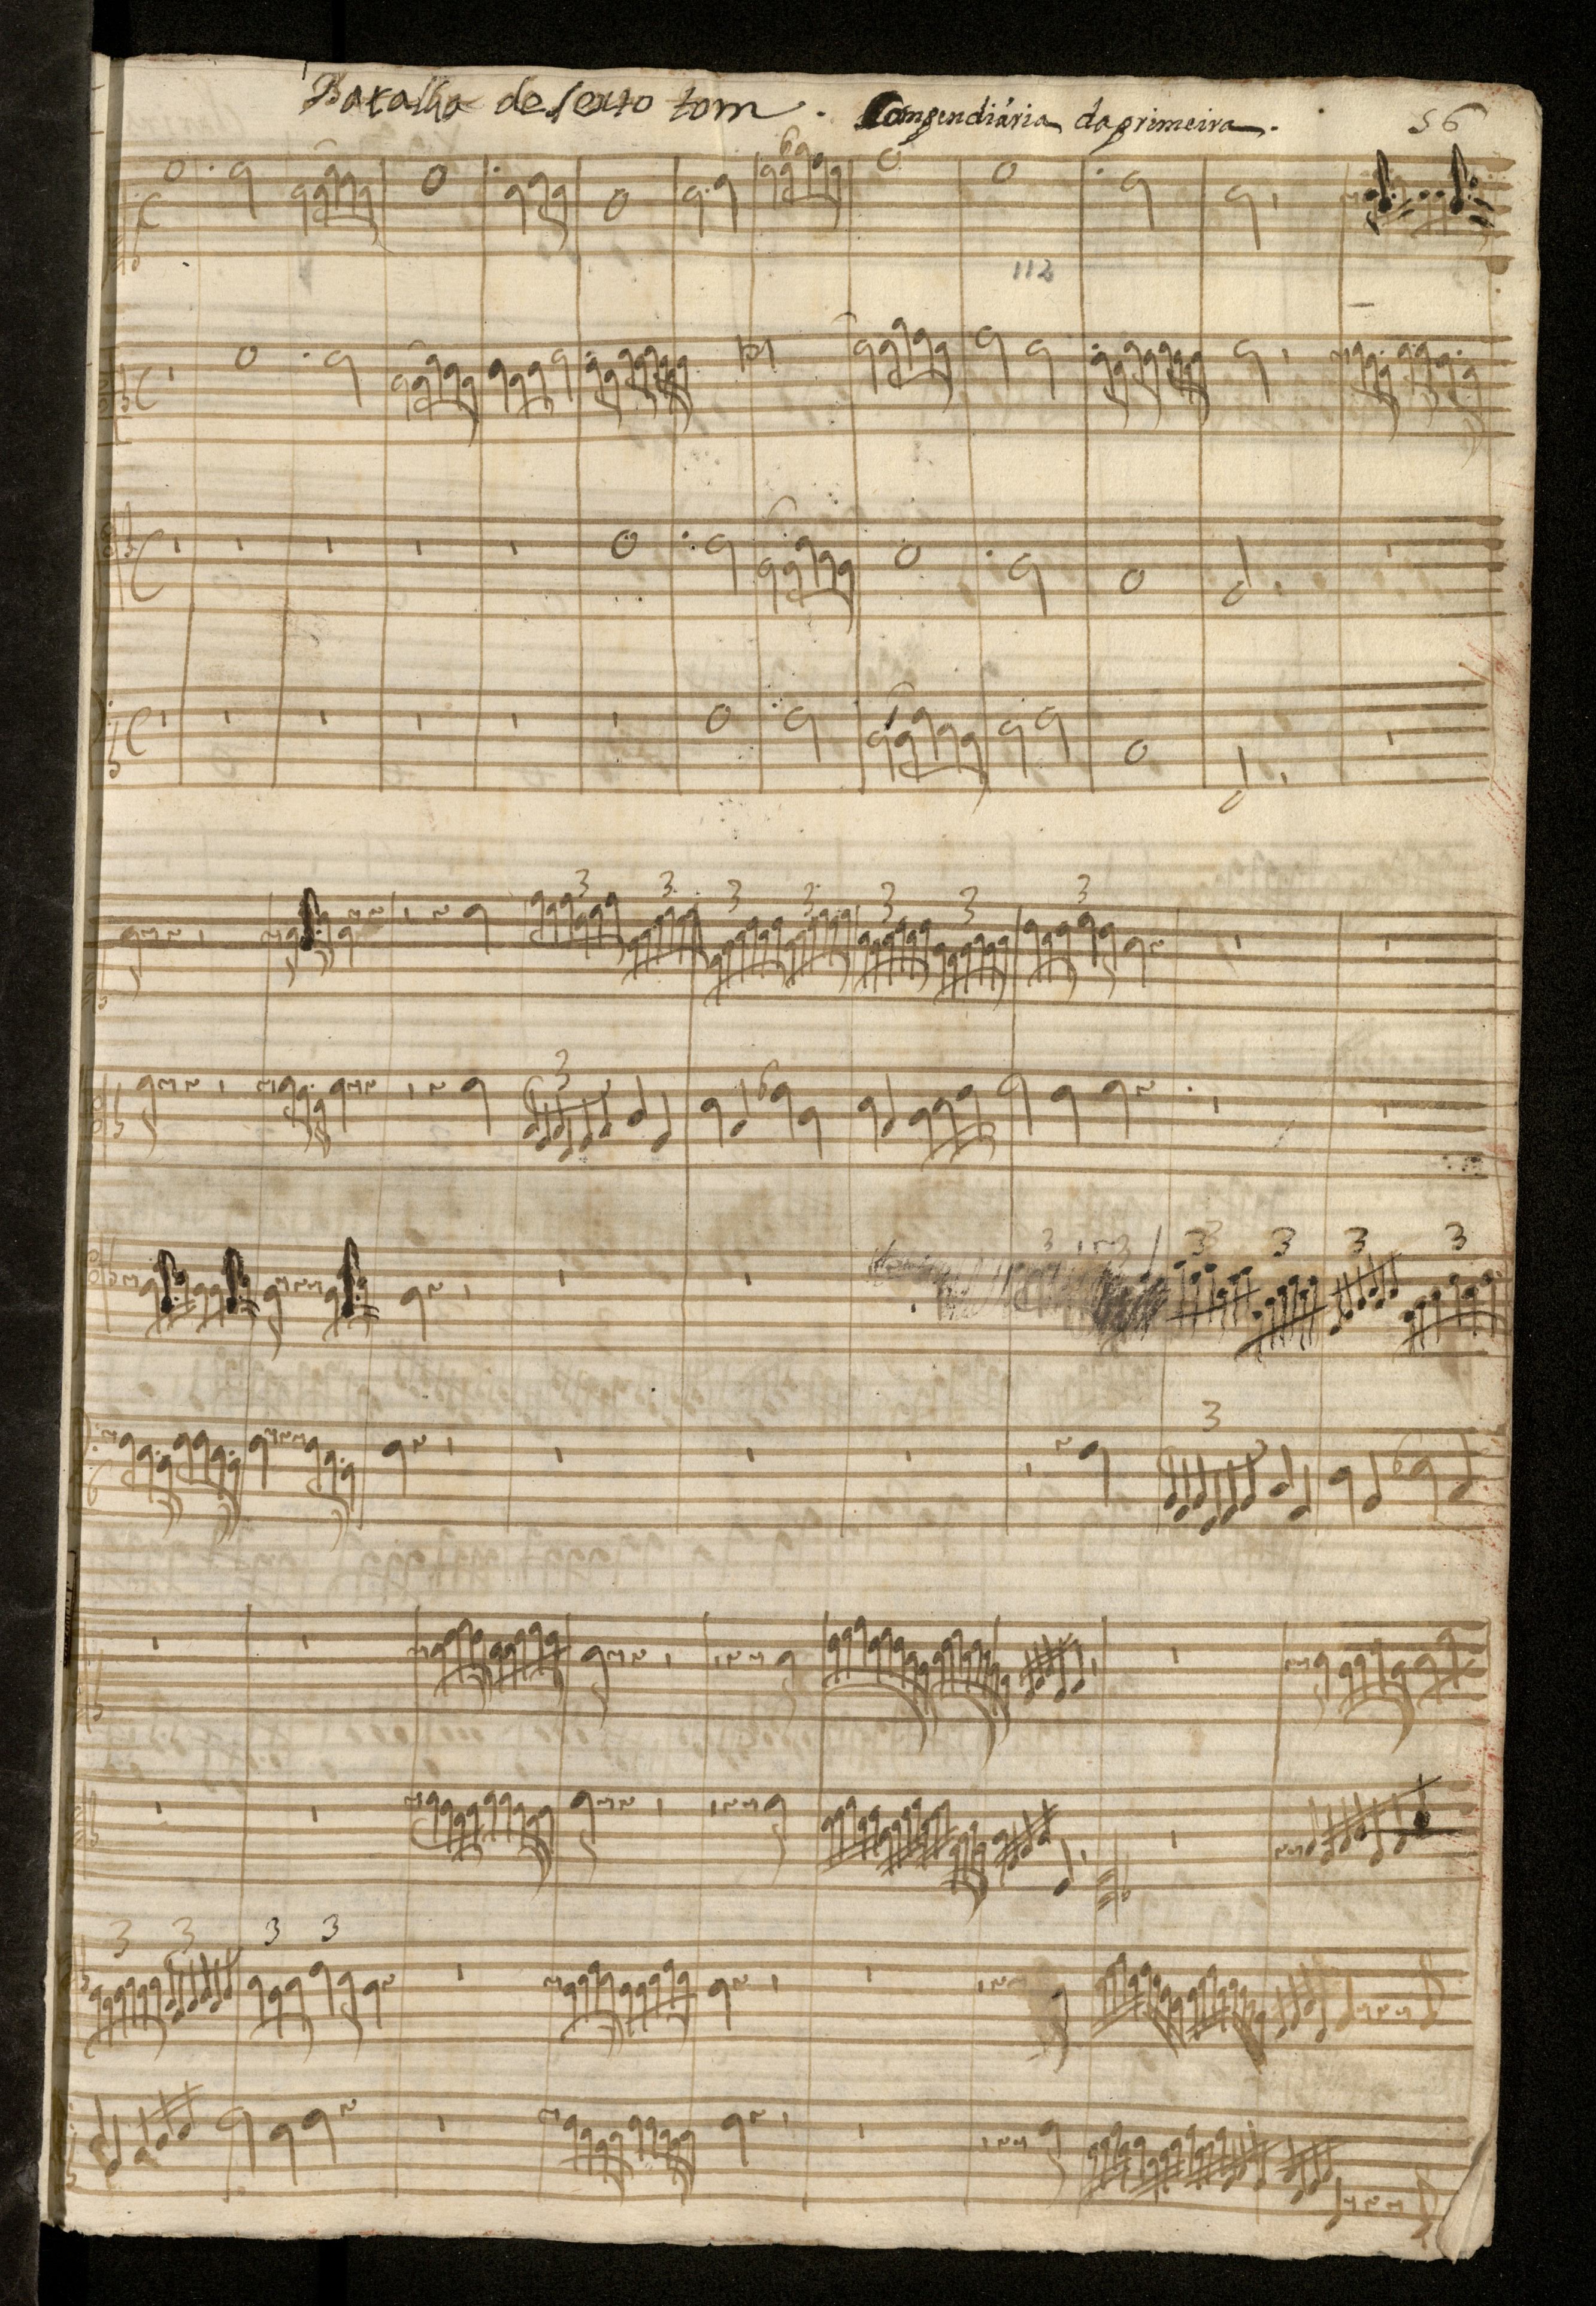 Batalha de sexto tom. Compendiária da primeira. 56
112
3 3 3 3 3 3 3
3
3 3 3 3 3 3
3
3 3 3 3